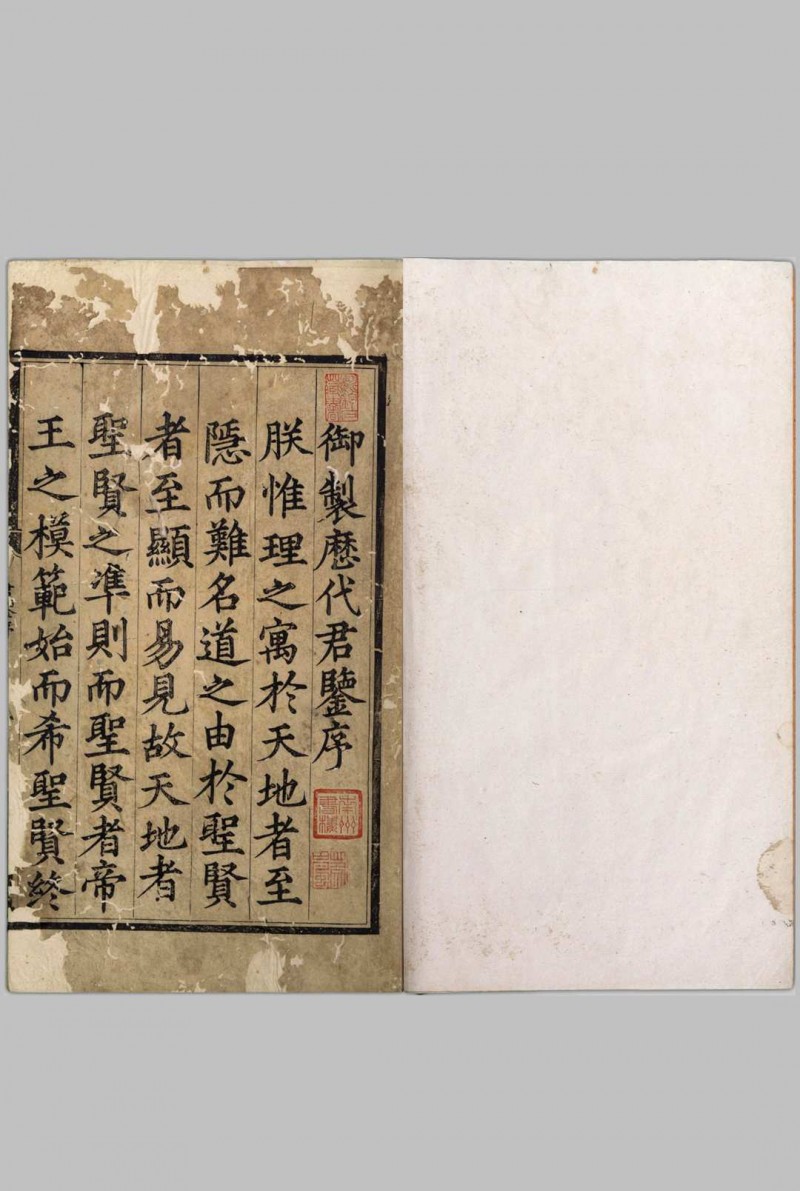 御製歷代君鑒序
朕惟理之寓於天地者至
隱而難名道之由於聖賢
者至顯而易見故天地者
聖賢之準則而聖賢者帝
王之模範始而希聖賢終